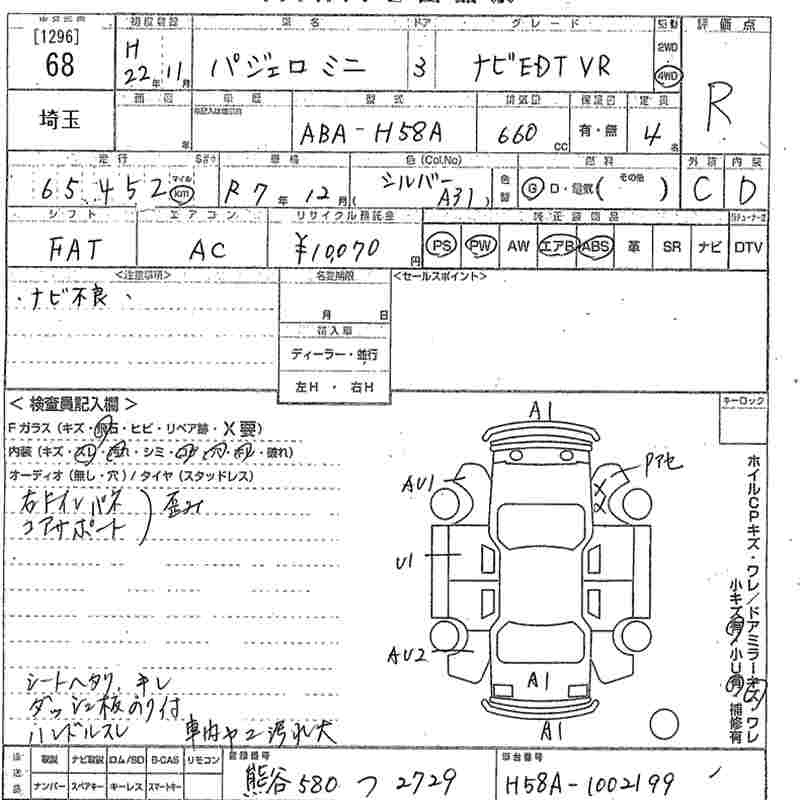 [1296]
68
初度登録
車名
ドア
グレード
駆動
評価点
H
22年 11月
パジェロ ミニ
3
ナビEDT VR
2WD
4WD
R
埼玉
車歴
型式
排気量
保証書
定員
年
ABA-H58A
660 cc
有・無
4名
走行
車検
色(Col,No)
燃料
外装
内装
65,452
マイル
km
R7年 12月
シルバー
( A31 )
色替
G D・電気( その他 )
C
D
シフト
エアコン
リサイクル預託金
純正装備品
FAT
AC
¥10,070円
PS
PW
AW
エアB
ABS
革
SR
ナビ
DTV
<注意事項>
名変期限
<セールスポイント>
・ナビ不良
月 日
輸入車
ディーラー・並行
左H ・ 右H
<検査員記入欄>
キーロック
Fガラス(キズ・飛石・ヒビ・リペア跡・X要)
内装(キズ・スレ・汚れ・シミ・
・破れ)
オーディオ(無し・穴)/タイヤ(スタッドレス)
コアサポート
歪み
A1
AU1
Pアセ
U1
AU2
A1
A1
ホイルCPキズ・ワレ/ドアミラーキズ・ワレ
小キズ有/小U有/補修有
シートヘタリ、キレ
ダッシュ板のり付
ハンドルスレ
車内ヤニ汚れ大
後送品
取説
ナビ取説
ロム/SD
B-CAS
リモコン
ナンバー
スペアキー
キーレス
スマートキー
登録番号
熊谷 580 つ 2729
車台番号
H58A-1002199